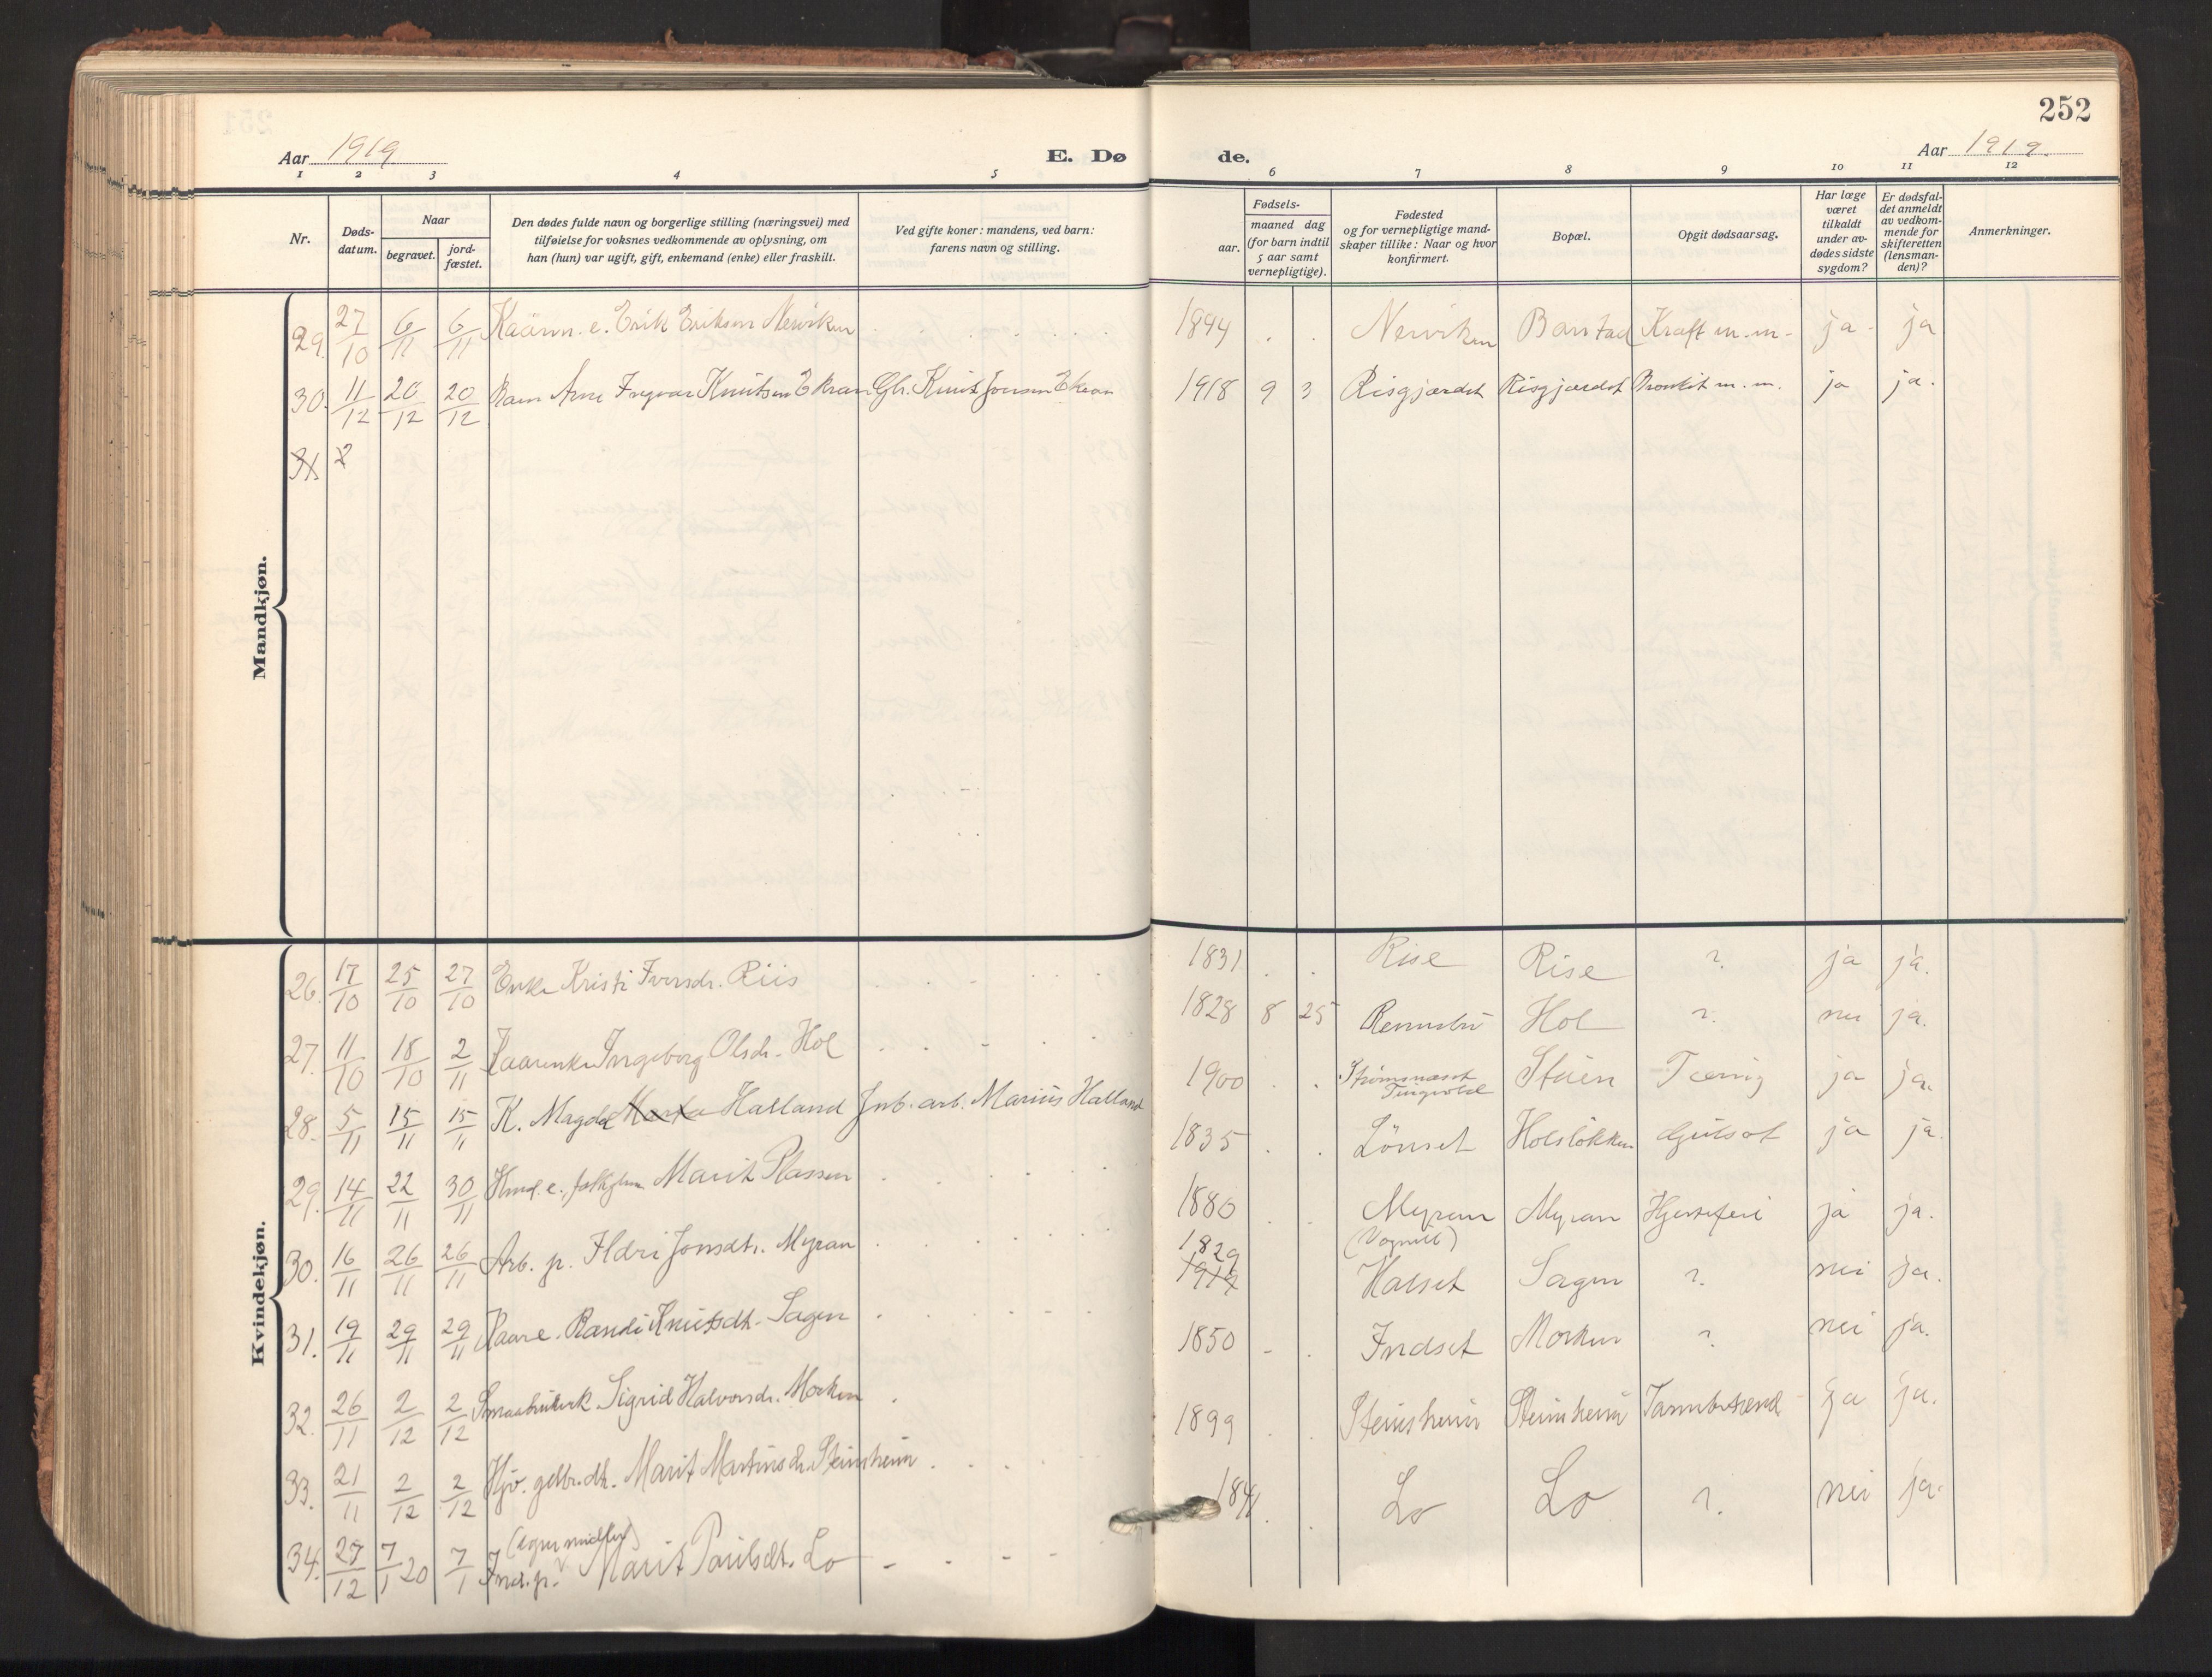 252
Aar 1919
E. Dø
de.
Aar 1919.
1 2 3 4 5 6 7 8 9 10 11 12
Nr.
Døds-
datum.
Naar
begravet.
jord-
fæstet.
Den dødes fulde navn og borgerlige stilling (næringsvei) med
tilføielse for voksnes vedkommende av oplysning, om
han (hun) var ugift, gift, enkemand (enke) eller fraskilt.
Ved gifte koner: mandens, ved barn:
farens navn og stilling.
Fødsels-
aar.
maaned dag
(for barn indtil
5 aar samt
vernepligtige).
Fødested
og for vernepligtige mand-
skaper tillike: Naar og hvor
konfirmert.
Bopæl.
Opgit dødsaarsag.
Har læge
været
tilkaldt
under av-
dødes sidste
sygdom?
Er dødsfal-
det anmeldt
av vedkom-
mende for
skifteretten
(lensman-
den)?
Anmerkninger.
Mandkjøn.
29. 27/10 6/11 6/11 Kaarm. e. Erik Eriksen Nerviken 1894 Nerviken Barstad Kraft m.m. ja ja
30. 11/12 20/12 20/12 Barn Arne Ingvar Knutsen Ekran Gbr. Knut Jonsen Ekran 1918 9 3 Risgjærdet Risgjærdet Bronkit m.m. ja ja.
31 2
Kvindekjøn.
26. 17/10 25/10 27/10 Enke Kristi Iversdr. Riis 1831 Rise Rise ? ja ja.
27. 11/10 18/10 2/11 Kaarenke Ingeborg Olsdr. Hol 1828 8 25 Rennebu Hol ? nei ja.
28. 5/11 15/11 15/11 K. Magda Marta Halland Jnb. arb. Marius Halland 1900 Strømsnæset Tingvold Stuen Tæring ja ja.
29. 14/11 22/11 30/11 Marit Plassen 1835 Lønset Holsløkken Gulsot ja ja.
30. 16/11 26/11 26/11 Arb. p. Ildri Jonsdtr. Myran 1880 Myran (Vognill) Myran Hjertefeil ja ja.
31. 19/11 29/11 29/11 Kaare. Randi Knutsdt. Sagen 1829 1919 Halset Sagen ? nei ja.
32. 26/11 2/12 2/12 Smaabrukerk Sigrid Halvorsdr. Morken 1850 Indset Morken ? nei ja.
33. 21/11 2/12 2/12 Hjv. gdbr. dt. Marit Martinsdr. Steinsheim 1899 Steinsheim Steinsheim Tarmbetænd. ja ja.
34. 27/12 7/1 20 7/1 Ind. p. (egne midler) Marit Paulsdt. Lo 1841 Lo Lo ? nei ja.